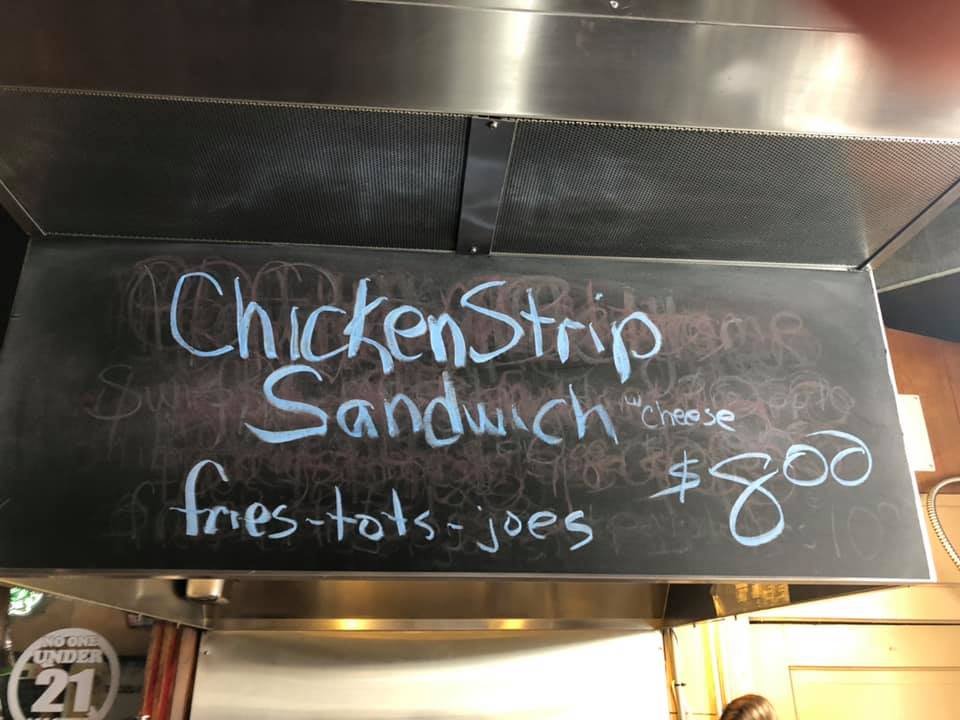 Chicken Strip
Sandwich w/ cheese
$8.00
fries-tots-joes
NO ONE
UNDER
21